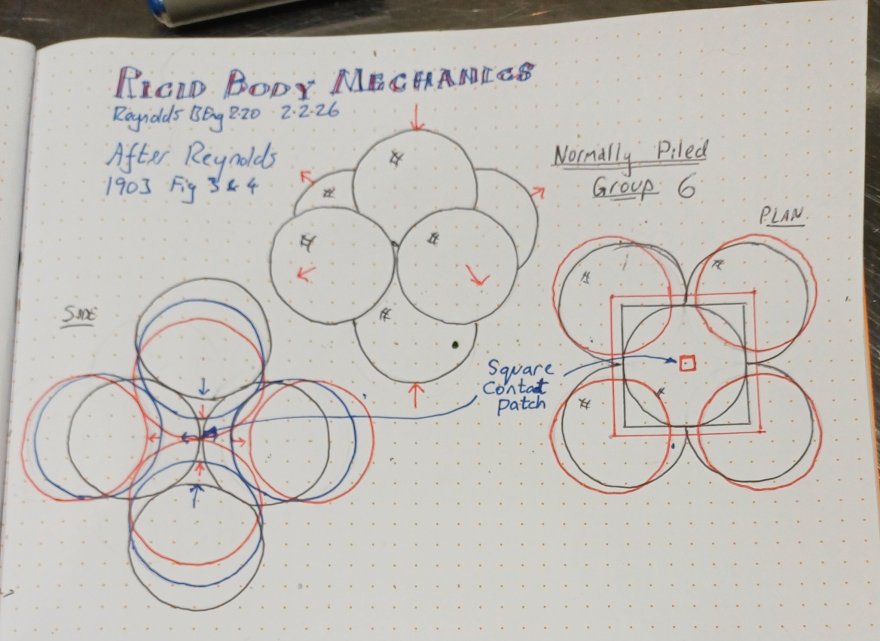 RIGID BODY MECHANICS
Reynolds BEng 2.20 2-2-26
After Reynolds
1903 Fig 3 & 4
Normally Piled
Group 6
PLAN
SIDE
Square
Contact
patch